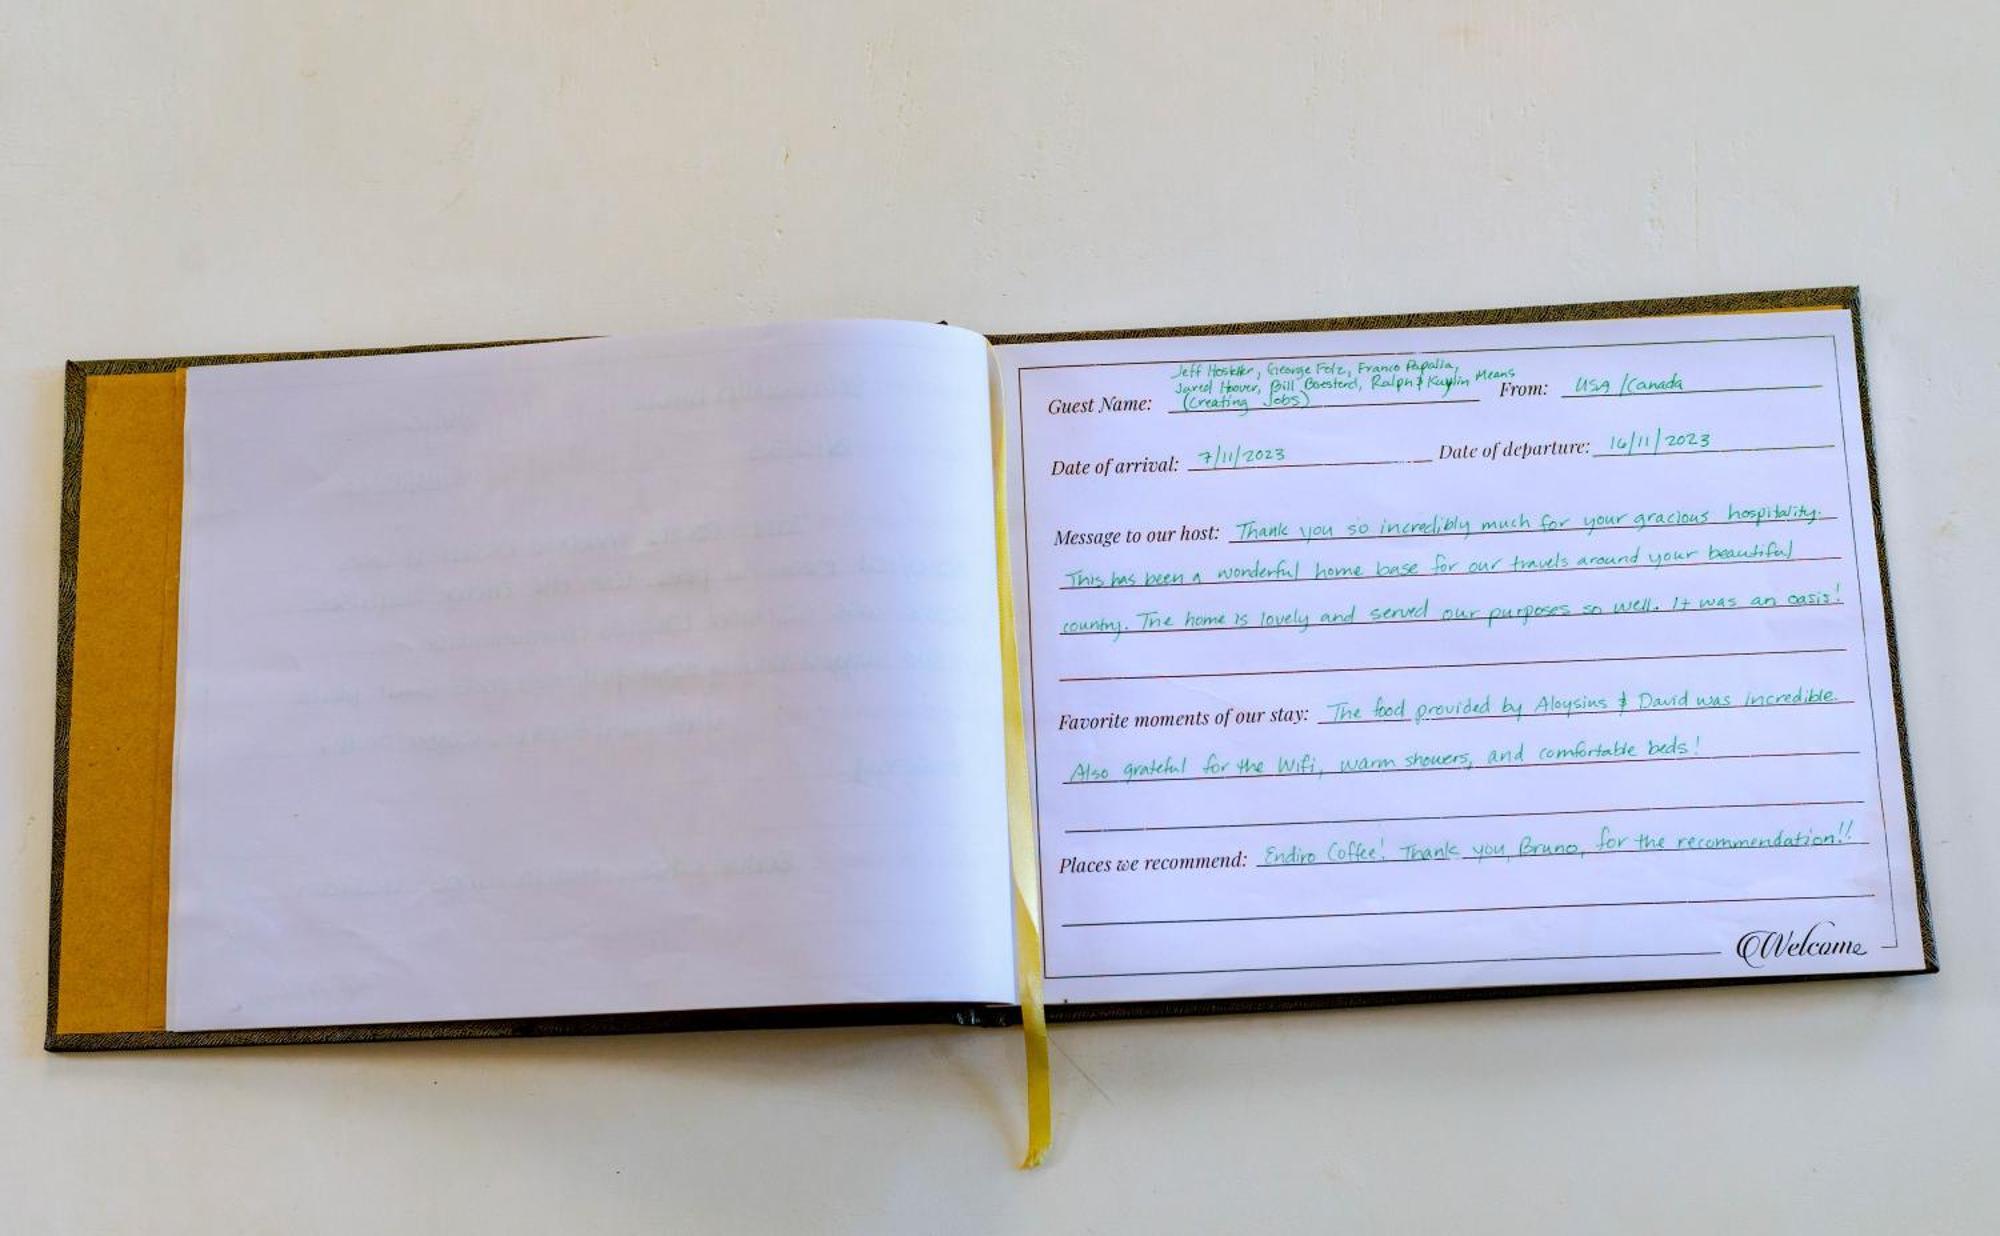 Jeff Hostetler, George Folz, Franco Papalia,
Jared Hoover, Bill Boesterd, Ralph & Kaylin Means
Guest Name: (Creating Jobs) From: USA/Canada
Date of arrival: 7/11/2023 Date of departure: 16/11/2023
Message to our host: Thank you so incredibly much for your gracious hospitality.
This has been a wonderful home base for our travels around your beautiful
country. The home is lovely and served our purposes so well. It was an oasis!
Favorite moments of our stay: The food provided by Aloysius & David was incredible.
Also grateful for the Wifi, warm showers, and comfortable beds!
Places we recommend: Endiro Coffee! Thank you, Bruno, for the recommendation!!
Welcome